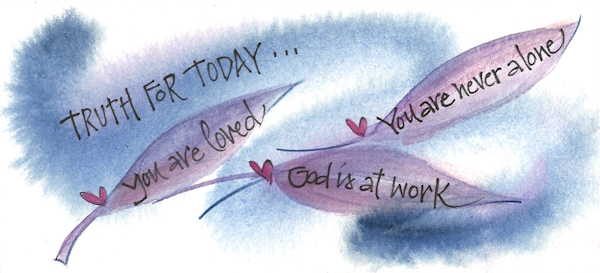 TRUTH FOR TODAY...
You are loved
You are never alone
God is at work